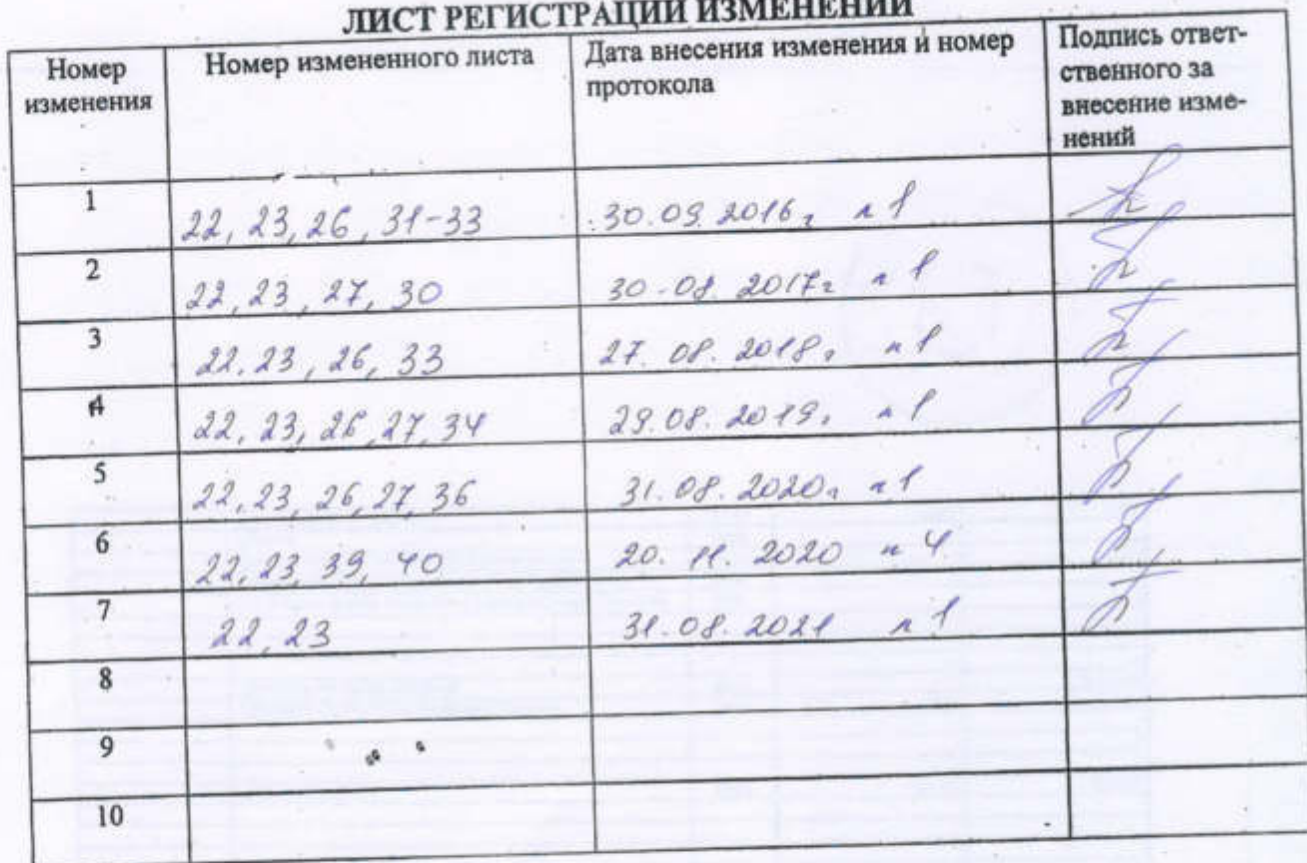 ЛИСТ РЕГИСТРАЦИИ ИЗМЕНЕНИЙ
Номер изменения
Номер измененного листа
Дата внесения изменения и номер протокола
Подпись ответ-
ственного за
внесение изме-
нений
1 22, 23, 26, 31-33 30.09.2016г п 1
2 22, 23, 27, 30 30.08.2017г п 1
3 22, 23, 26, 33 27.08.2018г п 1
4 22, 23, 26, 27, 34 29.08.2019г п 1
5 22, 23, 26, 27, 36 31.08.2020г п 1
6 22, 23, 39, 40 20.11.2020 п 4
7 22, 23 31.08.2021 п 1
8
9
10